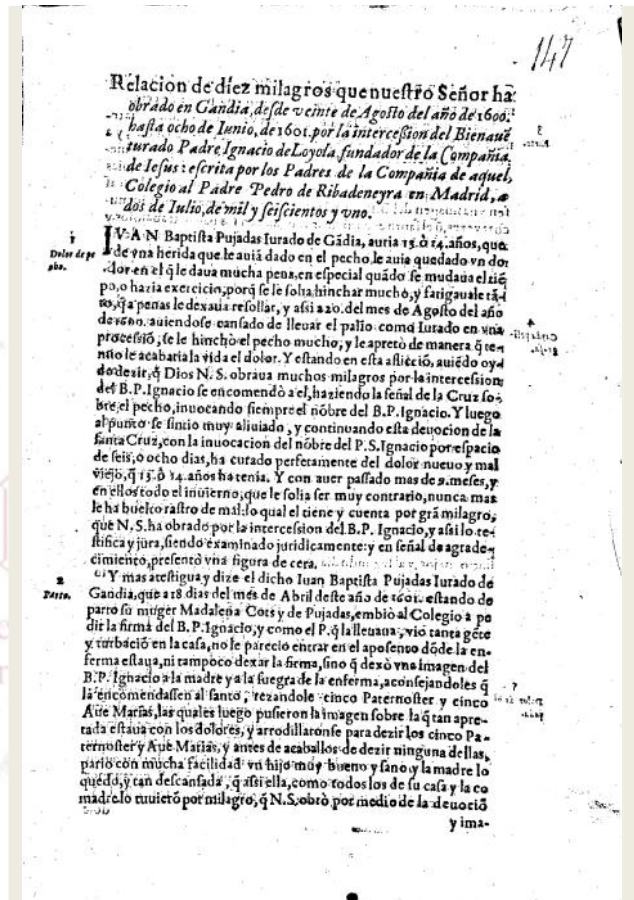 147
Relacion de diez milagros que nuestro Señor ha
obrado en Gandia, desde veinte de Agosto del año de 1600.
hasta ocho de Iunio, de 1601. por la intercession del Bienauẽ
turado Padre Ignacio de Loyola, fundador de la Compañia
de Iesus: escrita por los Padres de la Compañia de aquel
Colegio al Padre Pedro de Ribadeneyra en Madrid, a
dos de Iulio, de mil y seiscientos y vno.
1
Dolor de pe
cho.
IVAN Baptista Pujadas Iurado de Gãdia, auria 13. ò 14. años, que
de vna herida que le auiã dado en el pecho, le auia quedado vn do-
lor en el q̃ le daua mucha pena, en especial quãdo se mudaua el tiẽ
po, o hazia exercicio, porq̃ se le solia hinchar mucho, y fatigauale tã-
to, q̃ a penas le dexaua resollar, y assi a 20. del mes de Agosto del año
de 1600. auiendose cansado de lleuar el palio como Iurado en vna
processiõ, se le hinchò el pecho mucho, y le apretò de manera q̃ te-
miò le acabaria la vida el dolor. Y estando en esta aflicciõ, auiẽdo oy-
do dezir, q̃ Dios N. S. obraua muchos milagros por la intercession
del B. P. Ignacio se encomendò a el, haziendo la señal de la Cruz so-
bre el pecho, inuocando siempre el nõbre del B. P. Ignacio. Y luego
al punto se sintio muy aliuiado, y continuando esta deuocion de la
santa Cruz, con la inuocacion del nõbre del P. S. Ignacio por espacio
de seis, o ocho dias, ha curado perfetamente del dolor nueuo y mal
viejo, q̃ 13. ò 14. años ha tenia. Y con auer passado mas de 9. meses, y
en ellos todo el inuierno, que le solia ser muy contrario, nunca mas
le ha buelto rastro de mal: lo qual el tiene y cuenta por grã milagro,
que N. S. ha obrado por la intercession del B. P. Ignacio, y assi lo te-
stifica y jura, siendo examinado juridicamente: y en señal de agrade-
cimiento, presentò vna figura de cera.
2
Parto.
Y mas atestigua y dize el dicho Iuan Baptista Pujadas Iurado de
Gandia, que a 18 dias del mes de Abril deste año de 1601. estando de
parto su muger Madalena Cots y de Pujadas, embiò al Colegio a pe
dir la firma del B. P. Ignacio, y como el P. q̃ la lleuaua, viò tanta gẽte
y turbaciõ en la casa, no le pareciò entrar en el aposento dõde la en-
ferma estaua, ni tampoco dexar la firma, sino q̃ dexò vna imagen del
B. P. Ignacio a la madre y a la suegra de la enferma, aconsejandoles q̃
la encomendassen al santo, rezandole cinco Paternoster y cinco
Aue Marias, las quales luego pusieron la imagen sobre la q̃ tan apre-
tada estaua con los dolores, y arrodillarõse para dezir los cinco Pa-
ternoster y Aue Marias, y antes de acaballos de dezir ninguna dellas,
pario con mucha facilidad vn hijo muy bueno y sano, y la madre lo
quedò, y tan descansada, q̃ assi ella, como todos los de su casa y la co
madre lo tuuierõ por milagro, q̃ N. S. obrò por medio de la deuociõ
y ima-